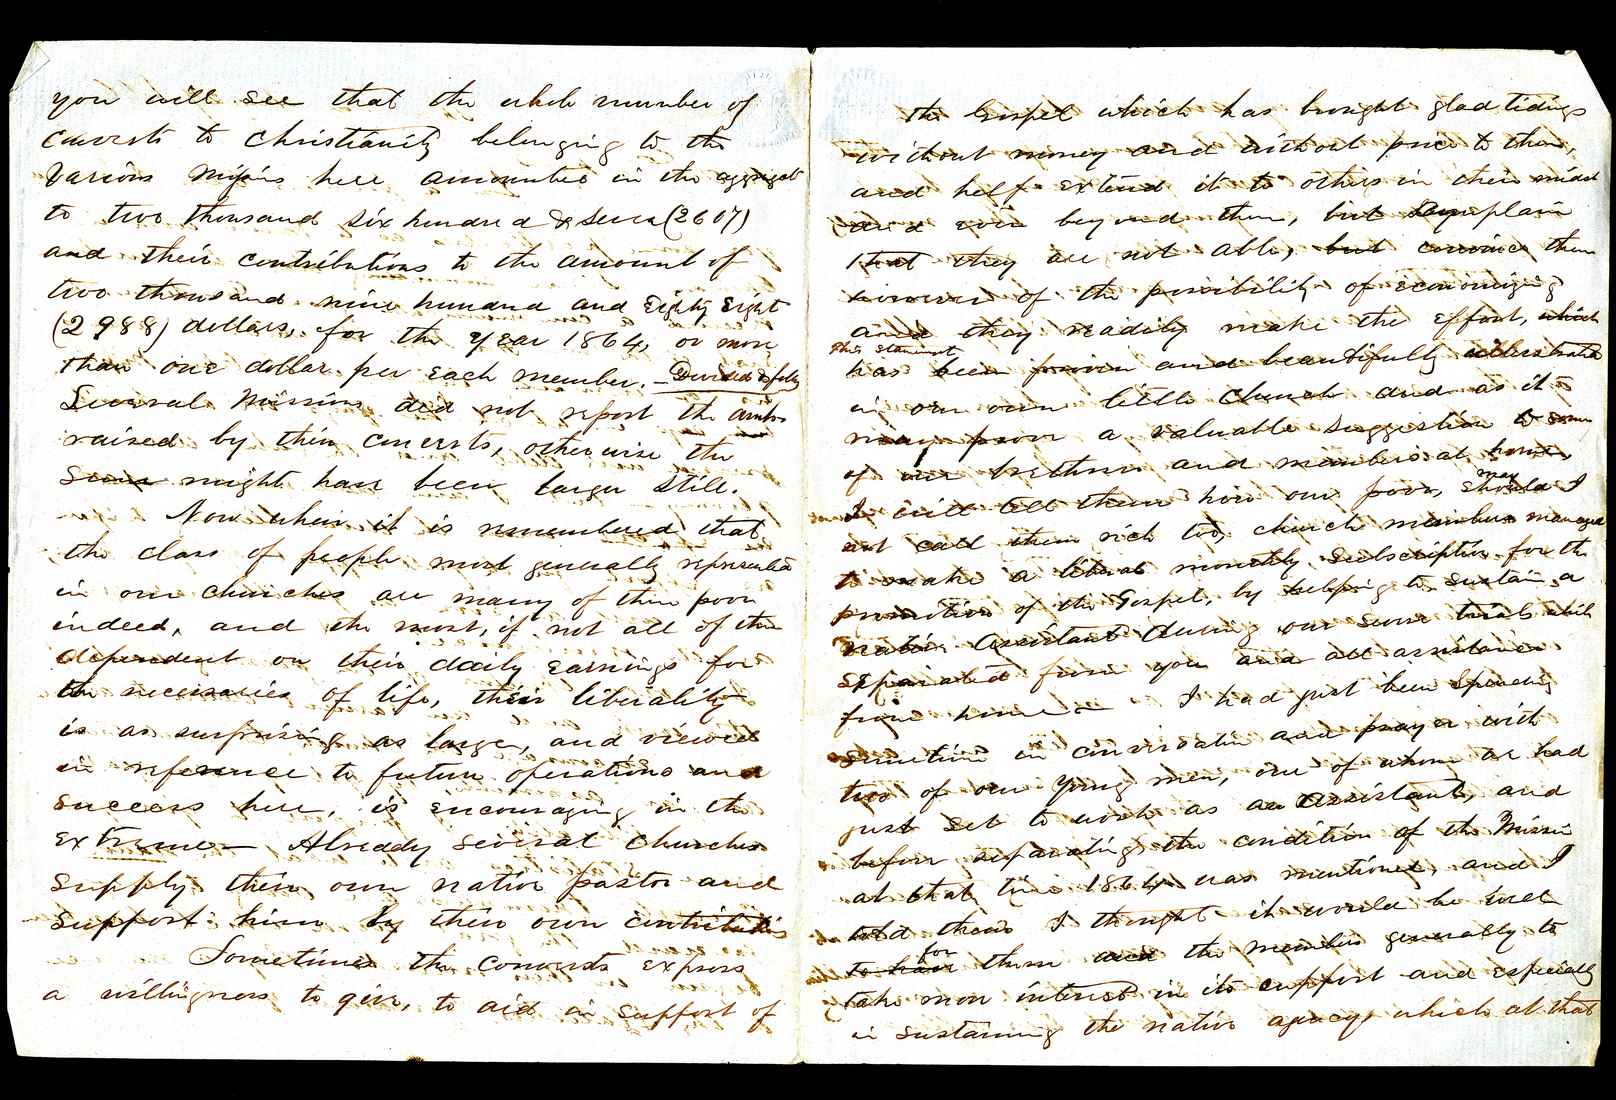 you will see that the whole number of
converts to Christianity belonging to the
various Missions here amounted in the aggregate
to two thousand six hundred & seven (2607)
and their contributions to the amount of
two thousand nine hundred and Eighty Eight
(2988) dollars, for the year 1864, or more
than one dollar per each member. —
Several Missions did not report the amts
raised by their converts, otherwise the
sum might have been larger still.
Now when it is remembered that
the class of people most generally represented
in our churches are many of them poor
indeed, and the most, if not all of them
dependent on their daily earnings for
the necessaries of life, their liberality
is as surprising as large, and viewed
in reference to future operations and
success here, is encouraging in the
extreme — Already several Churches
supply their own native pastor and
support him by their own contributions
Sometimes the converts express
a willingness to give, to aid in support of
the Gospel which has brought glad tidings
without money and without price to them,
and help extend it to others in their midst
and even beyond them, but complain
that they are not able, but convince them
however of the possibility of economizing
and they readily make the effort, which
This statement
has been proven and beautifully illustrated
in our own little Church and as it
may prove a valuable suggestion to some
of our brethren and members at home,
may
I will tell them how our poor, should I
not call them rich too, church members managed
to make a liberal monthly subscription for the
promotion of the Gospel, by helping to sustain a
native Assistant during our sore trials while
separated from you and all assistance
from home — I had just been spending
sometime in conversation and prayer with
two of our young men, one of whom we had
just set to work as an assistant, and
before separating the condition of the Mission
at that time 1864 was mentioned, and I
told them I thought it would be well
for
to have them and the members generally to
take more interest in its support and especially
in sustaining the native agency which at that